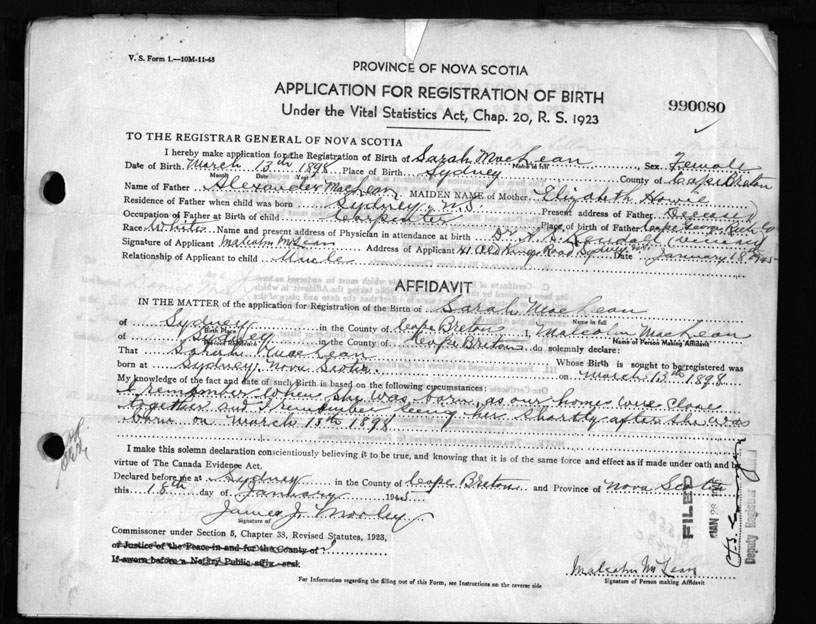 V. S. Form 1.—10M-11-43
PROVINCE OF NOVA SCOTIA
APPLICATION FOR REGISTRATION OF BIRTH
Under the Vital Statistics Act, Chap. 20, R. S. 1923
990080
TO THE REGISTRAR GENERAL OF NOVA SCOTIA
I hereby make application for the Registration of Birth of Sarah MacLean, Sex Female
Name in full
Date of Birth March 13th 1898 Place of Birth Sydney County of Cape Breton
Month Year
Name of Father Alexander MacLean MAIDEN NAME of Mother Elizabeth Howie
Residence of Father when child was born Sydney N.S. Present address of Father Deceased
Occupation of Father at Birth of child Carpenter Place of birth of Father Cape George Rich Co
Race White Name and present address of Physician in attendance at birth Dr.
Signature of Applicant Malcolm McLean Address of Applicant 41 Old Kings Road Sydney N.S. Date January 18th 1945
Relationship of Applicant to child Uncle
AFFIDAVIT
IN THE MATTER of the application for Registration of the Birth of Sarah MacLean
Name in full
of Sydney in the County of Cape Breton I, Malcolm MacLean
Birth Place Name of Person Making Affidavit
of Sydney in the County of Cape Breton do solemnly declare:
That Sarah MacLean Whose Birth is sought to be registered was
born at Sydney, Nova Scotia on March 13th 1898
My knowledge of the fact and date of such Birth is based on the following circumstances:
I remember when she was born, as our homes were close
together and I remember seeing her shortly after she was
born on March 13th 1898
I make this solemn declaration conscientiously believing it to be true, and knowing that it is of the same force and effect as if made under oath and by
virtue of The Canada Evidence Act.
Declared before me at Sydney in the County of Cape Breton and Province of Nova Scotia
this 18th day of January 1945
James J. Morley
Signature of
Commissoner under Section 5, Chapter 38, Revised Statutes, 1923,
or Justice of the Peace in and for the County of
If sworn before a Notary Public affix seal
FILED
JAN 28
Deputy Registrar
Malcolm McLean
Signature of Person making Affidavit
For Information regarding the filling out of this Form, see Instructions on the reverse side